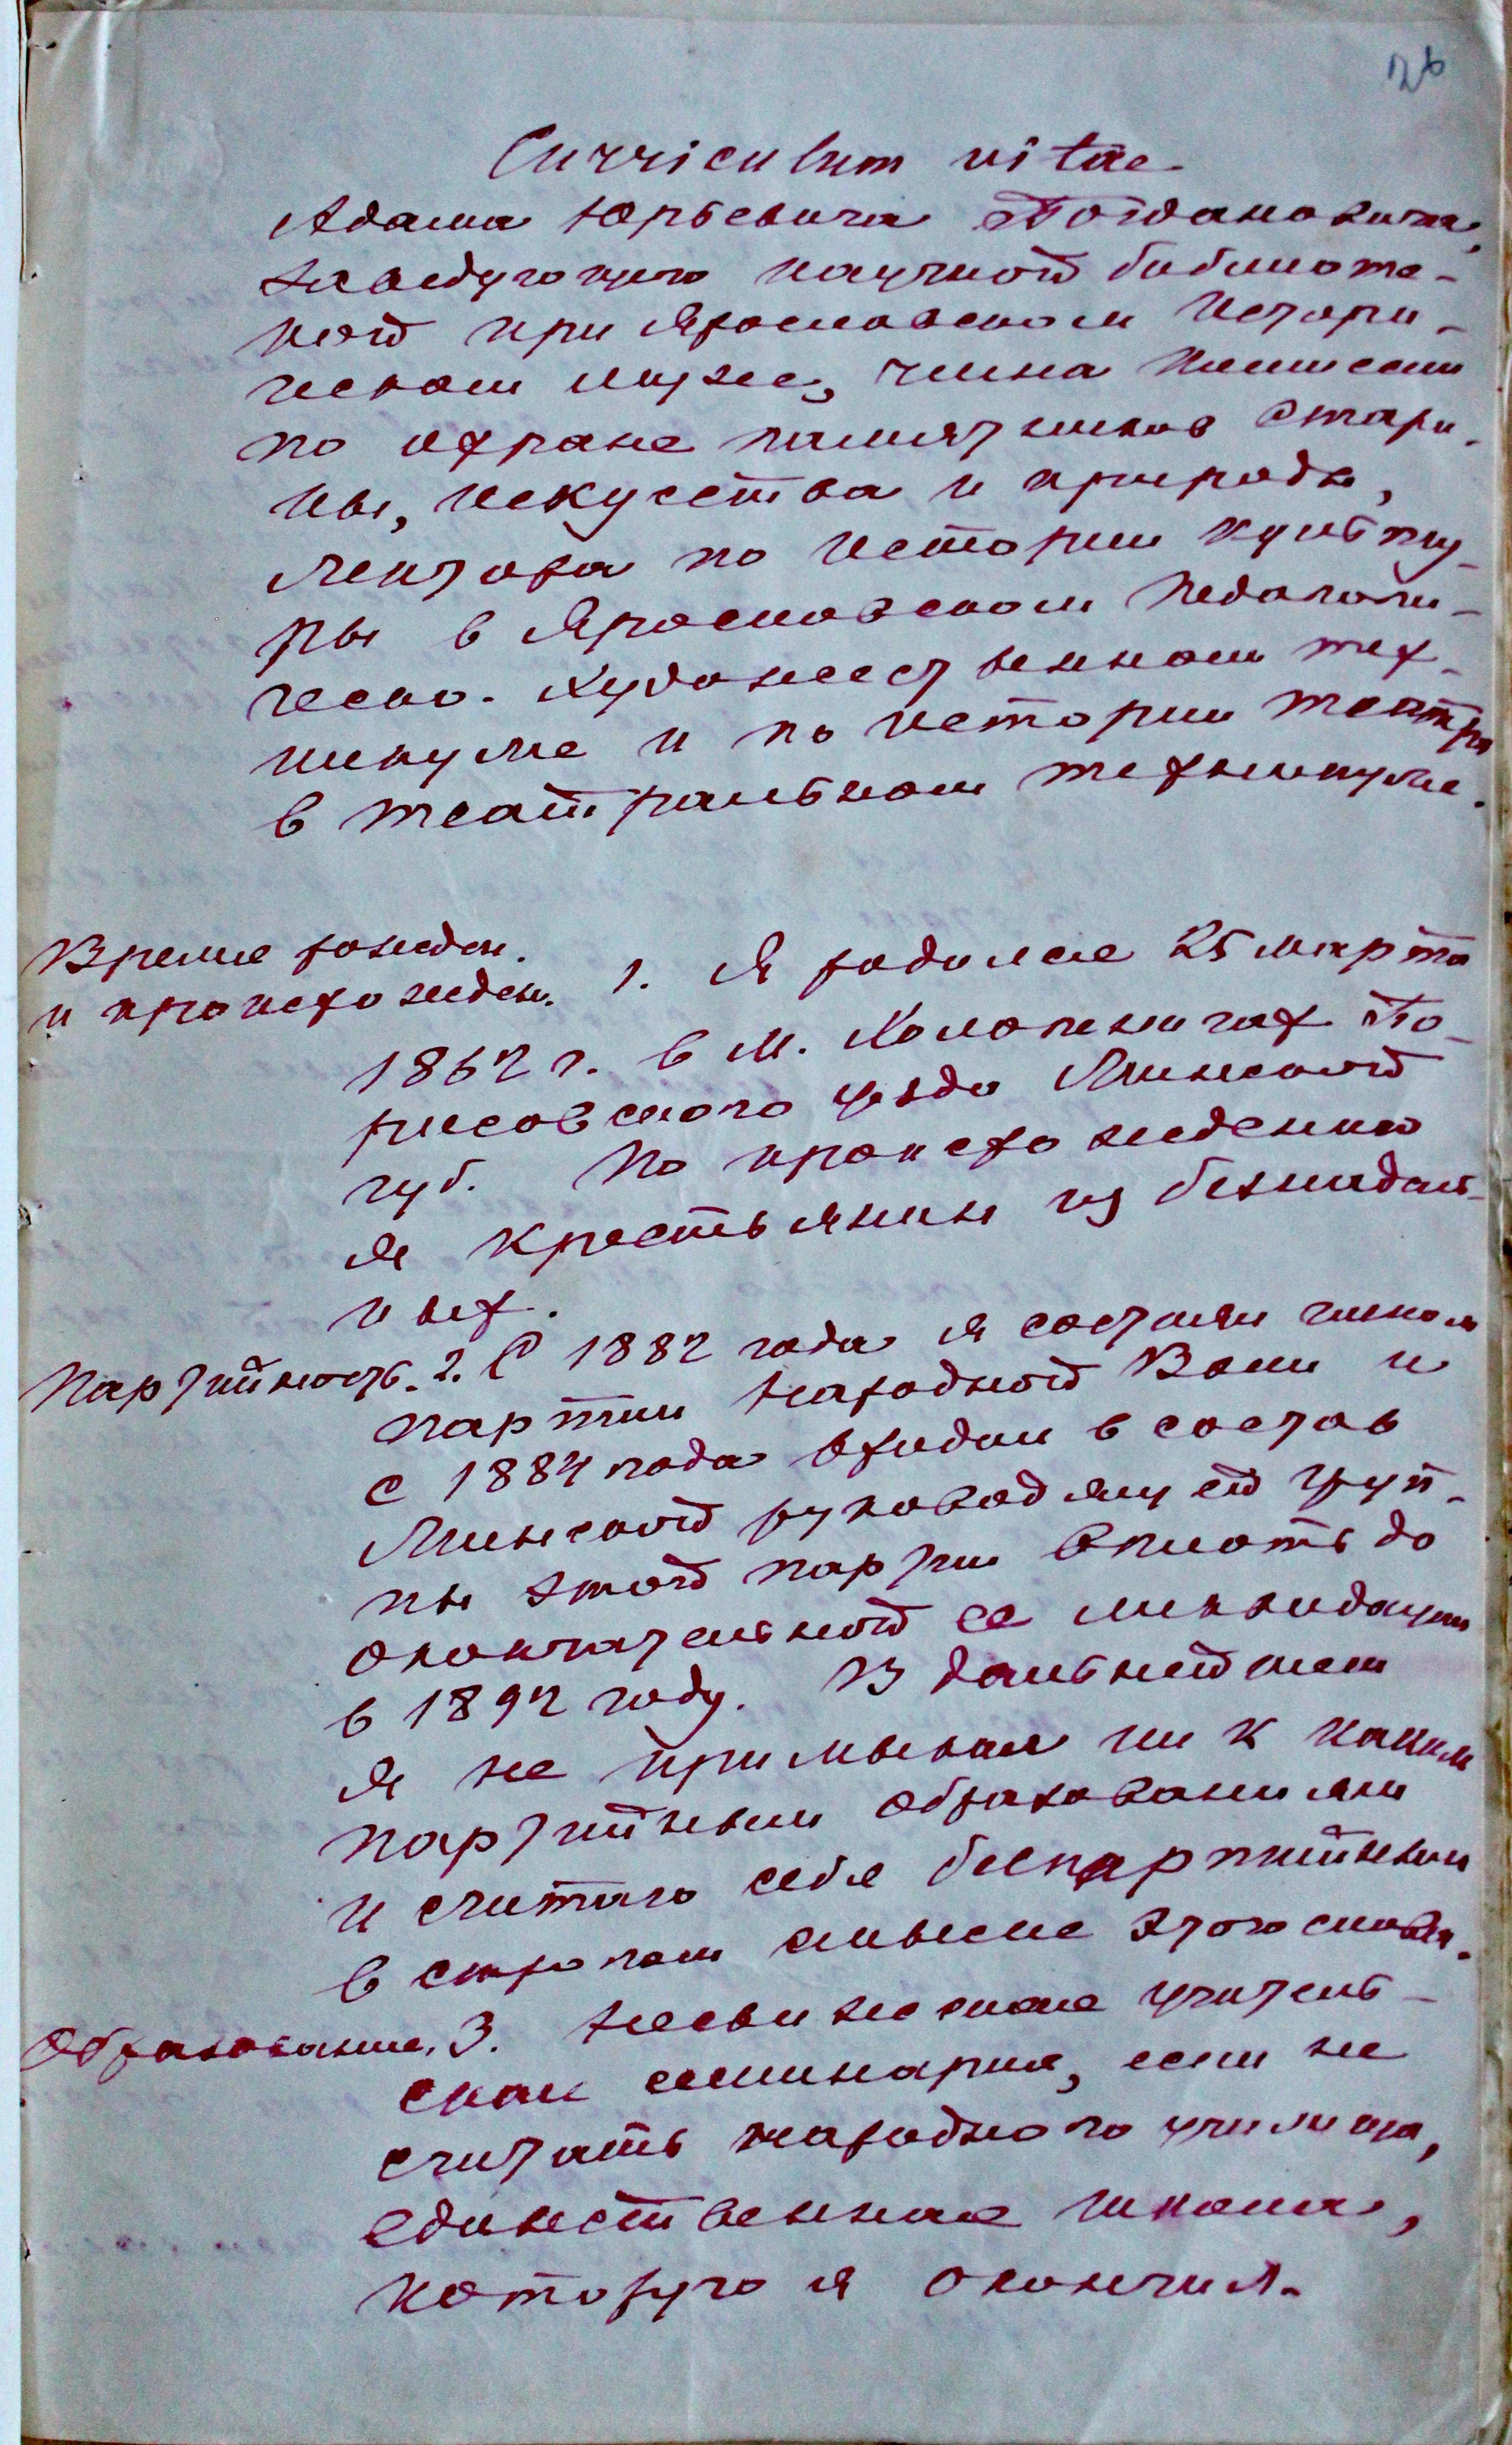 126
Curriculum vitae
Адама Юрьевича Богдановича,
заведующего научной библиоте-
кой при Ярославском Истори-
ческом музее, члена Комиссии
по охране памятников стари-
ны, искусства и природы,
лектора по истории культу-
ры в Ярославском Педагоги-
ческо-Художественном тех-
никуме и по истории театра
в театральном техникуме.
Время рожден.
и происхожден. 1. Я родился 25 марта
1862 г. в м. Холопеничах Бо-
рисовского уезда Минской
губ. По происхождению
я крестьянин из безнадель-
ных.
Партийность. 2. С 1882 года я состоял членом
партии Народной Воли и
с 1884 года входил в состав
Минской руководящей груп-
пы этой партии вплоть до
окончательной ее ликвидации
в 1892 году. В дальнейшем
я не примыкал ни к каким
партийным образованиям
и считаю себя беспартийным
в строгом смысле этого слова.
Образование. 3. Несвижская учитель-
ская семинария, если не
считать народного училища,
единственная школа,
которую я окончил.